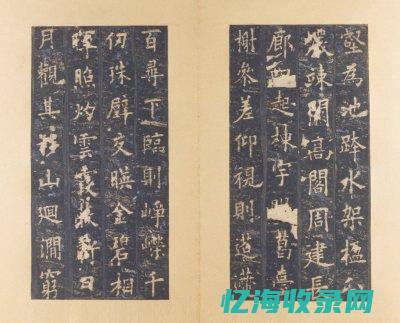 壑為池跨水架楹分
巖竦闕高閣周建長
廊四起棟宇葛臺
榭參差仰視則迢遰
百尋下臨則崢嶸千
仞珠璧交暎金碧相
暉照灼雲霞蔽虧日
月觀其移山迴澗窮
亿海收录网